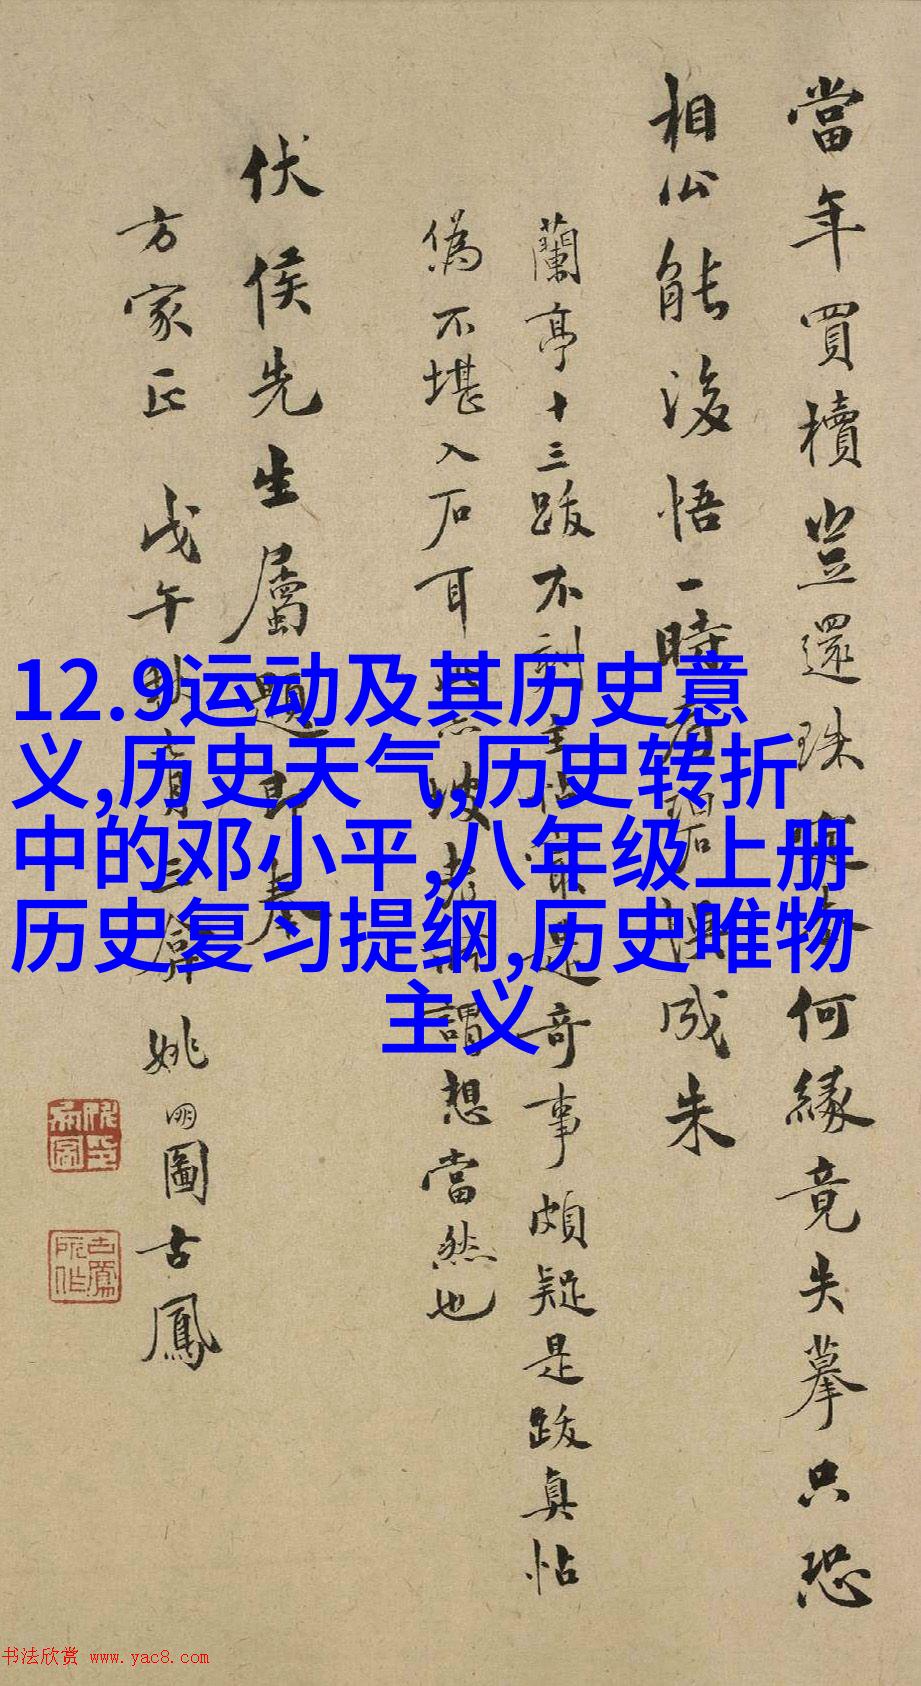 12.9运动及其历史意
义,历史天气,历史转折
中的邓小平,八年级上册
历史复习提纲,历史唯物
主义
當年買櫝豈還珠何緣竟失摹只恐
相公能後悟一時看碧誤成朱
蘭亭十三跋不刻主帖實是奇事頗疑是跋真帖
偽不堪入石耳坡老所謂想當然也
伏侯先生屬題即奉
方家正 戊午秋 姚 圖古鳳
书法欣赏 www.yac8.com